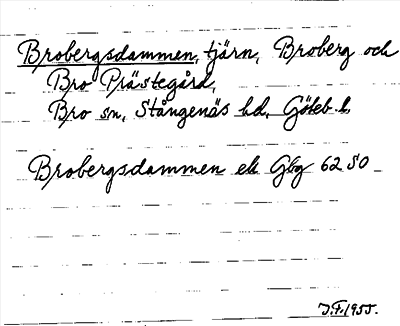 Brobergsdammen, tjärn, Broberg och
Bro Prästegård,
Bro sn, Stångenäs hd, Göteb. l.
Brobergsdammen ek Gbg 62 SO
J.F. 1955.